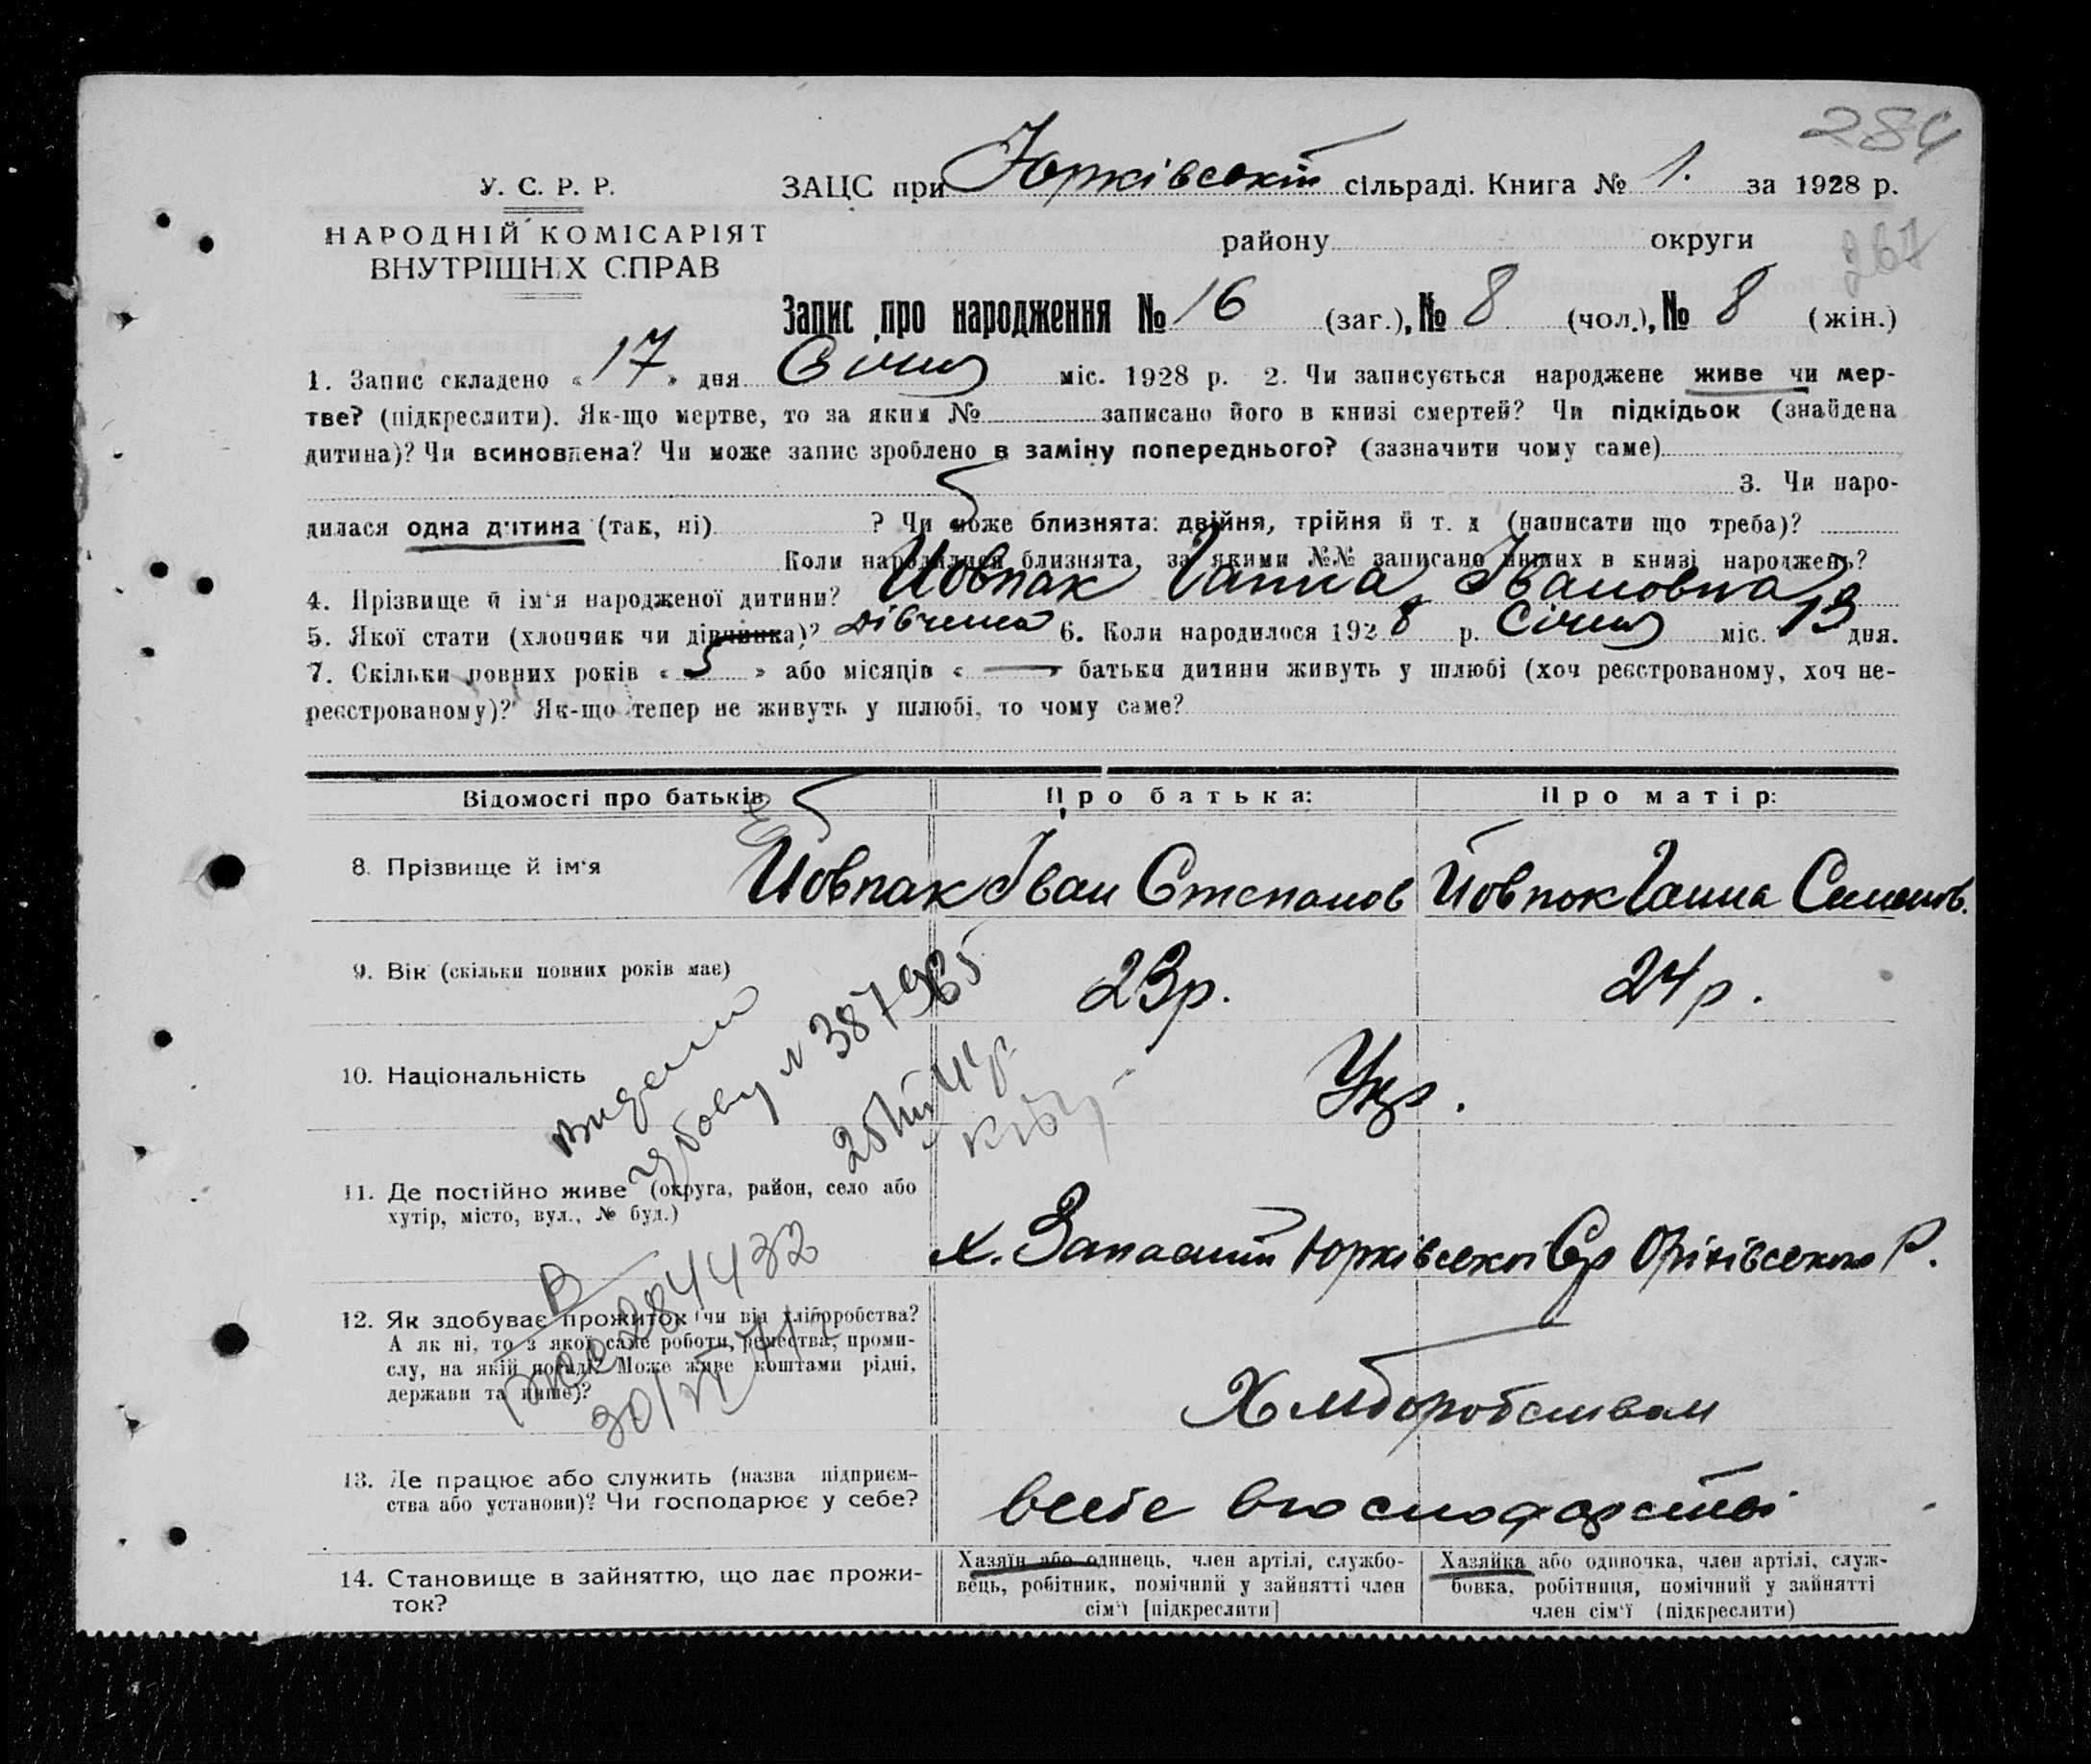 284
У. С. Р. Р.
ЗАЦС при Юрківській сільраді. Книга № 1. за 1928 р.
НАРОДНІЙ КОМІСАРІЯТ
ВНУТРІШНІХ СПРАВ
району округи
267
Запис про народження № 16 (заг.), № 8 (чол.), № 8 (жін.)
1. Запис складено « 17 » дня Січня міс. 1928 р. 2. Чи записується народжене живе чи мер-
тве? (підкреслити). Як-що мертве, то за яким № записано його в книзі смертей? Чи підкідьок (знайдена
дитина)? Чи всиновлена? Чи може запис зроблено в заміну попереднього? (зазначити чому саме)
3. Чи наро-
дилася одна дитина (так, ні) ? Чи може близнята: двійня, трійня й т. д (написати що треба)?
Коли народилися близнята, за якими №№ записано инших в книзі народжень?
4. Прізвище й ім'я народженої дитини? Йовпак Ганна Івановна
5. Якої стати (хлопчик чи дівчинка)? Дівчина 6. Коли народилося 1928 р. Січня міс. 13 дня.
7. Скільки повних років « 5 » або місяців « — » батьки дитини живуть у шлюбі (хоч реєстрованому, хоч не-
реєстрованому)? Як-що тепер не живуть у шлюбі, то чому саме?
Відомості про батьків Про батька: Про матір:
8. Прізвище й ім'я Йовпак Іван Степанов Йовпок Ганна Семенов.
9. Вік (скільки повних років має) 23р. 24р.
10. Національність Укр.
видано
№ 387965
11. Де постійно живе (округа, район, село або
хутір, місто, вул., № буд.)
х. Запасний Юрківської Ср Орінівсекого Р.
284432
12. Як здобуває прожиток (чи від хліборобства?
А як ні, то з якої саме роботи, ремества, проми-
слу, на якій посаді? Може живе коштами рідні,
держави та инше)?
Хліборобством
13. Де працює або служить (назва підприєм-
ства або установи)? Чи господарює у себе?
всебе вгосподарстві
14. Становище в зайняттю, що дає прожи-
ток?
Хазяїн або одинець, член артілі, службо-
вець, робітник, помічний у зайнятті член
сім'ї [підкреслити]
Хазяйка або одиночка, член артілі, служ-
бовка, робітниця, помічний у зайнятті
член сім'ї (підкреслити)